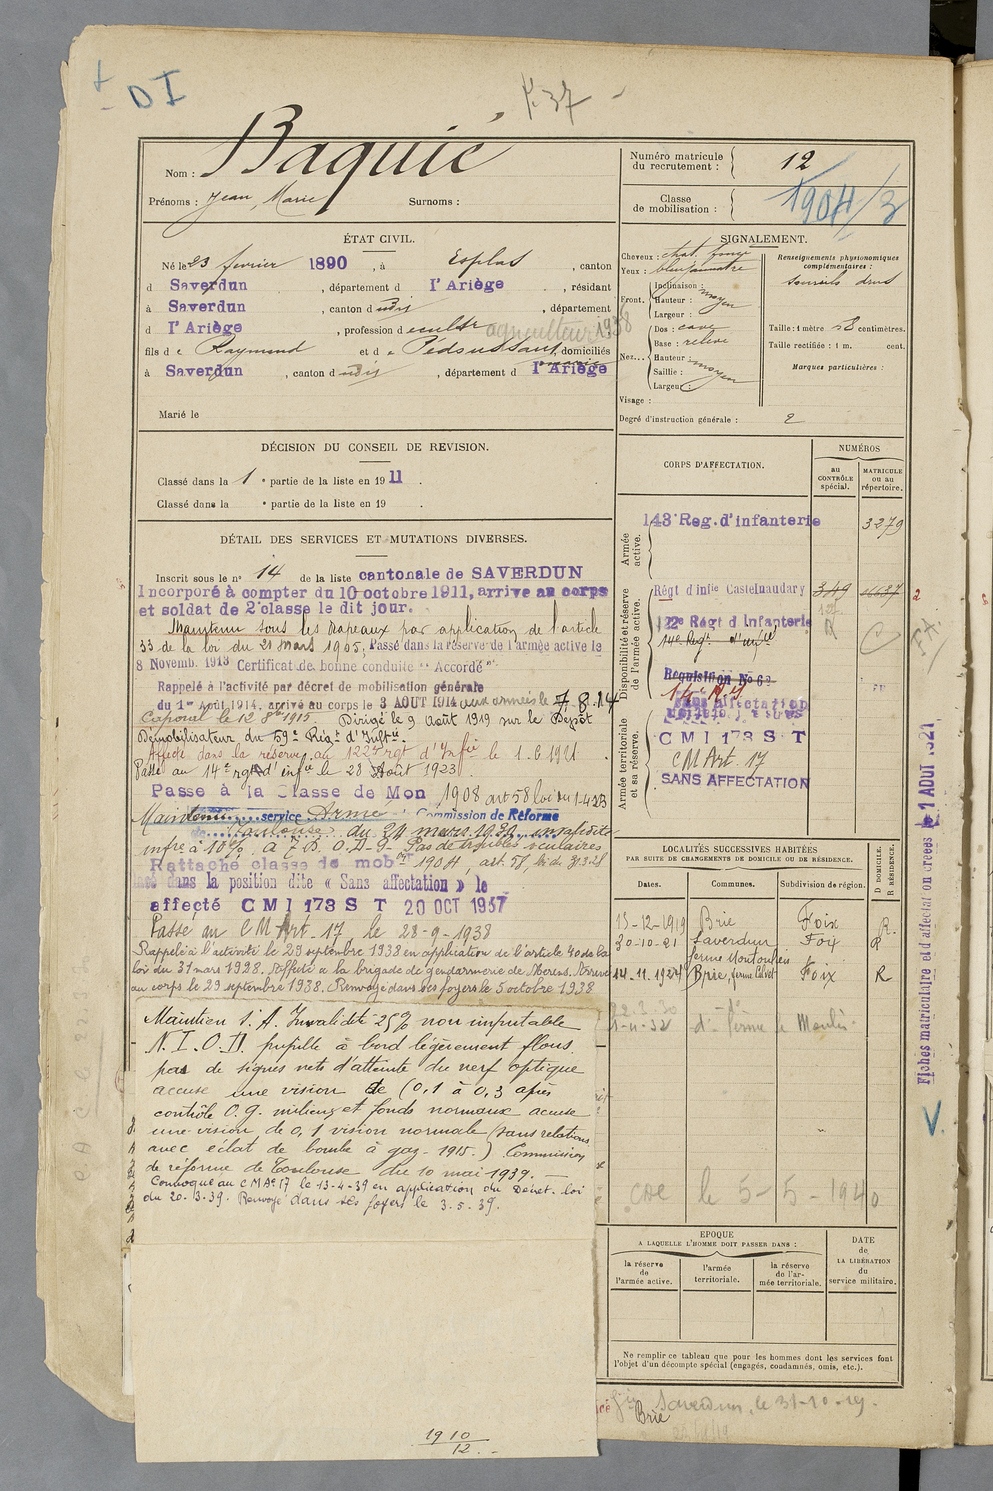 DI
Nom : Baquié
Prénoms : Jean, Marie Surnoms :
ÉTAT CIVIL.
Né le 23 février 1890, à Esplas, canton
d Saverdun, département d l'Ariège, résidant
à Saverdun, canton d udit, département
d l'Ariège, profession d cultr agriculteur 1938
fils d e Raymond et d e Pédoussaut, domiciliés
à Saverdun, canton d udit, département d l'Ariège
Marié le
DÉCISION DU CONSEIL DE REVISION.
Classé dans la 1 e partie de la liste en 1911.
Classé dans la e partie de la liste en 19 .
DÉTAIL DES SERVICES ET MUTATIONS DIVERSES.
Inscrit sous le n° 14 de la liste cantonale de SAVERDUN
Incorporé à compter du 10 octobre 1911, arrive au corps
et soldat de 2e classe le dit jour.
Maintenu sous les drapeaux par application de l'article
33 de la loi du 21 mars 1905, Passé dans la réserve de l'armée active le
8 Novemb. 1913 Certificat de bonne conduite "Accordé"
Rappelé à l'activité par décret de mobilisation générale
du 1er Août 1914, arrivé au corps le 3 AOUT 1914 aux armées le 7.8.14
Caporal le 12 8bre 1915. Dirigé le 9 Août 1919 sur le Dépôt
Démobilisateur du 59e Régt d'Inftie.
Affecté dans la réserve au 122e rgt d'Infie le 1.6.1921
Passé au 14e rgt d'infie le 28 Août 1923.
Passe à la Classe de Mon 1908 art 58 loi du 1-4-23
Maintenu service Armé Commission de Réforme
de Toulouse du 24 mars 1930 invalidité
infre à 10% Pas de troubles oculaires
Rattaché classe de mobon 1904, art. 58, loi du 31.3.28
dans la position dite « Sans affectation » le
affecté CMI 173 ST 20 OCT 1937
Passé au CM Art. 17 le 28-9-1938
Rappelé à l'activité le 29 septembre 1938 en application de l'article 40 de la
loi du 31 mars 1928. Affecté a la brigade de gendarmerie de Merens. Arrivé
au corps le 29 septembre 1938. Renvoyé dans ses foyers le 5 octobre 1938
Maintien S. A. Invalidité 25% non imputable
N.I.O.D. pupille à bord légèrement flous,
pas de signes nets d'atteinte du nerf optique
accuse une vision de (0,1 à 0,3 après
contrôle O.g. milieux et fonds normaux accuse
une vision de 0,1 vision normale (sans relations
avec éclat de bombe à gaz - 1915.) Commission
de réforme de Toulouse du 10 mai 1939.
Convoqué au CMAe 17 le 13-4-39 en application du Décret-loi
du 20-3-39. Renvoyé dans ses foyers le 3.5.39.
1910
12
Numéro matricule du recrutement : 12
Classe de mobilisation : 1904/3
SIGNALEMENT.
Cheveux : chat. foncé
Yeux : bleu jaunatre
Front. Inclinaison : moyen
Hauteur :
Largeur :
Nez... Dos : cave
Base : relevé
Hauteur : moyen
Saillie :
Largeur :
Visage :
Renseignements physionomiques complémentaires :
sourcils drus
Taille : 1 mètre 58 centimètres.
Taille rectifiée : 1 m. cent.
Marques particulières :
Degré d'instruction générale : 2
CORPS D'AFFECTATION.
NUMÉROS
au CONTRÔLE spécial.
MATRICULE ou au répertoire.
Armée active.
143e Reg. d'infanterie 3279
Disponibilité et réserve de l'armée active.
Régt d'infie Castelnaudary 349
122e Régt d'Infanterie
14e Regt d'infie
Requisition No 62
Armée territoriale et sa réserve.
CMI 173 ST
CM Art. 17
SANS AFFECTATION
LOCALITÉS SUCCESSIVES HABITÉES
PAR SUITE DE CHANGEMENTS DE DOMICILE OU DE RÉSIDENCE.
Dates. Communes. Subdivision de région. D DOMICILE. R RÉSIDENCE.
15-12-1919 Brie Foix R.
30-10-21 Saverdun Foix R
ferme Montoulieu
14.11.1924 Brie, ferme Calvet Foix R
22.3.30 do
1-11-32 do ferme le Moulis
le 5-5-1940
EPOQUE
A LAQUELLE L'HOMME DOIT PASSER DANS :
la réserve de l'armée active.
l'armée territoriale.
la réserve de l'armée territoriale.
DATE de LA LIBÉRATION du service militaire.
Ne remplir ce tableau que pour les hommes dont les services font
l'objet d'un décompte spécial (engagés, condamnés, omis, etc.).
Saverdun, le 31-10-19.
Brie
Fiches matriculaire et d'affectation créées le 1 AOUT 1921
V.